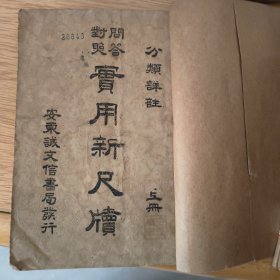 分類詳註
上冊
問答
對照
實用新尺牘
安東誠文信書局發行